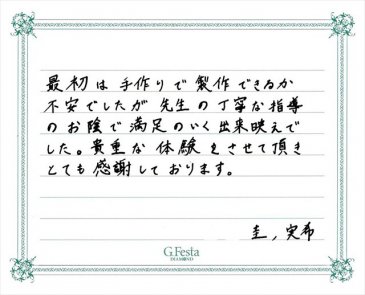 最初は手作りで製作できるか
不安でしたが先生の丁寧な指導
のお陰で満足のいく出来映えで
した。貴重な体験をさせて頂き
とても感謝しております。
圭,実希
G.Festa
DIAMOND